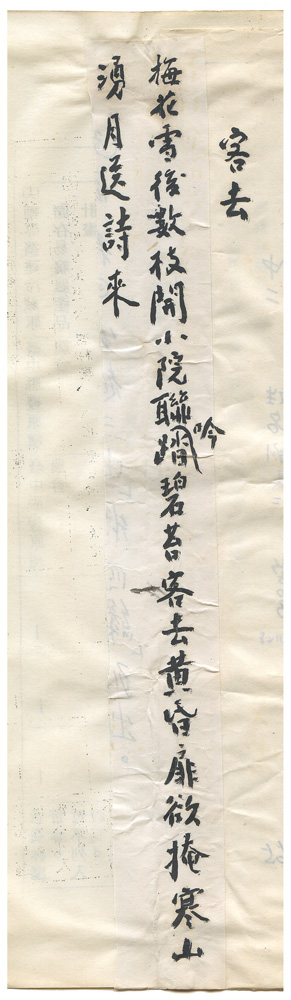 客去
梅花雪後數枝開小院聯吟踏碧苔客去黃昏扉欲掩寒山
湧月送詩來